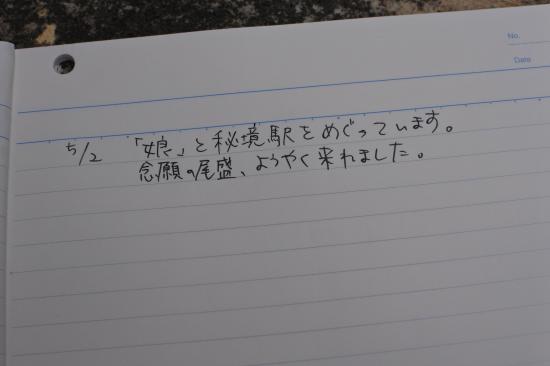 No.
Date
5/2 「娘」と秘境駅をめぐっています。
念願の尾盛、ようやく来れました。